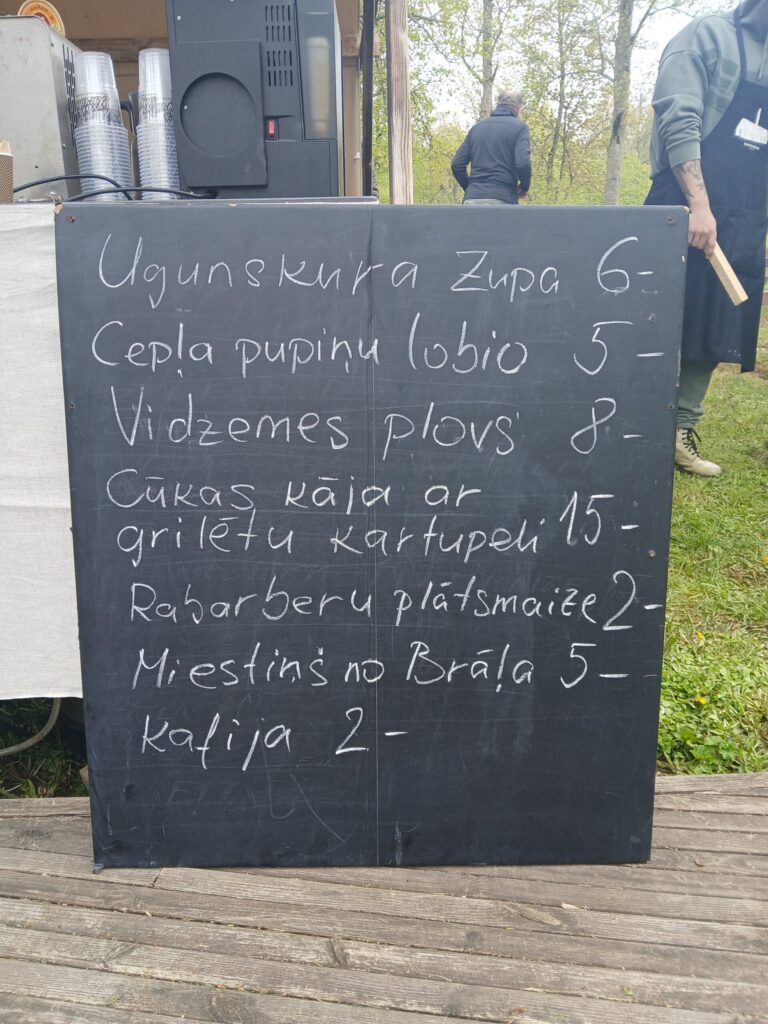 Ugunskura zupa 6-
Cepļa pupiņu lobio 5-
Vidzemes plovs 8-
Cūkas kāja ar
grilētu kartupeli 15-
Rabarberu plātsmaize 2-
Miestiņš no Brāļa 5-
Kafija 2-